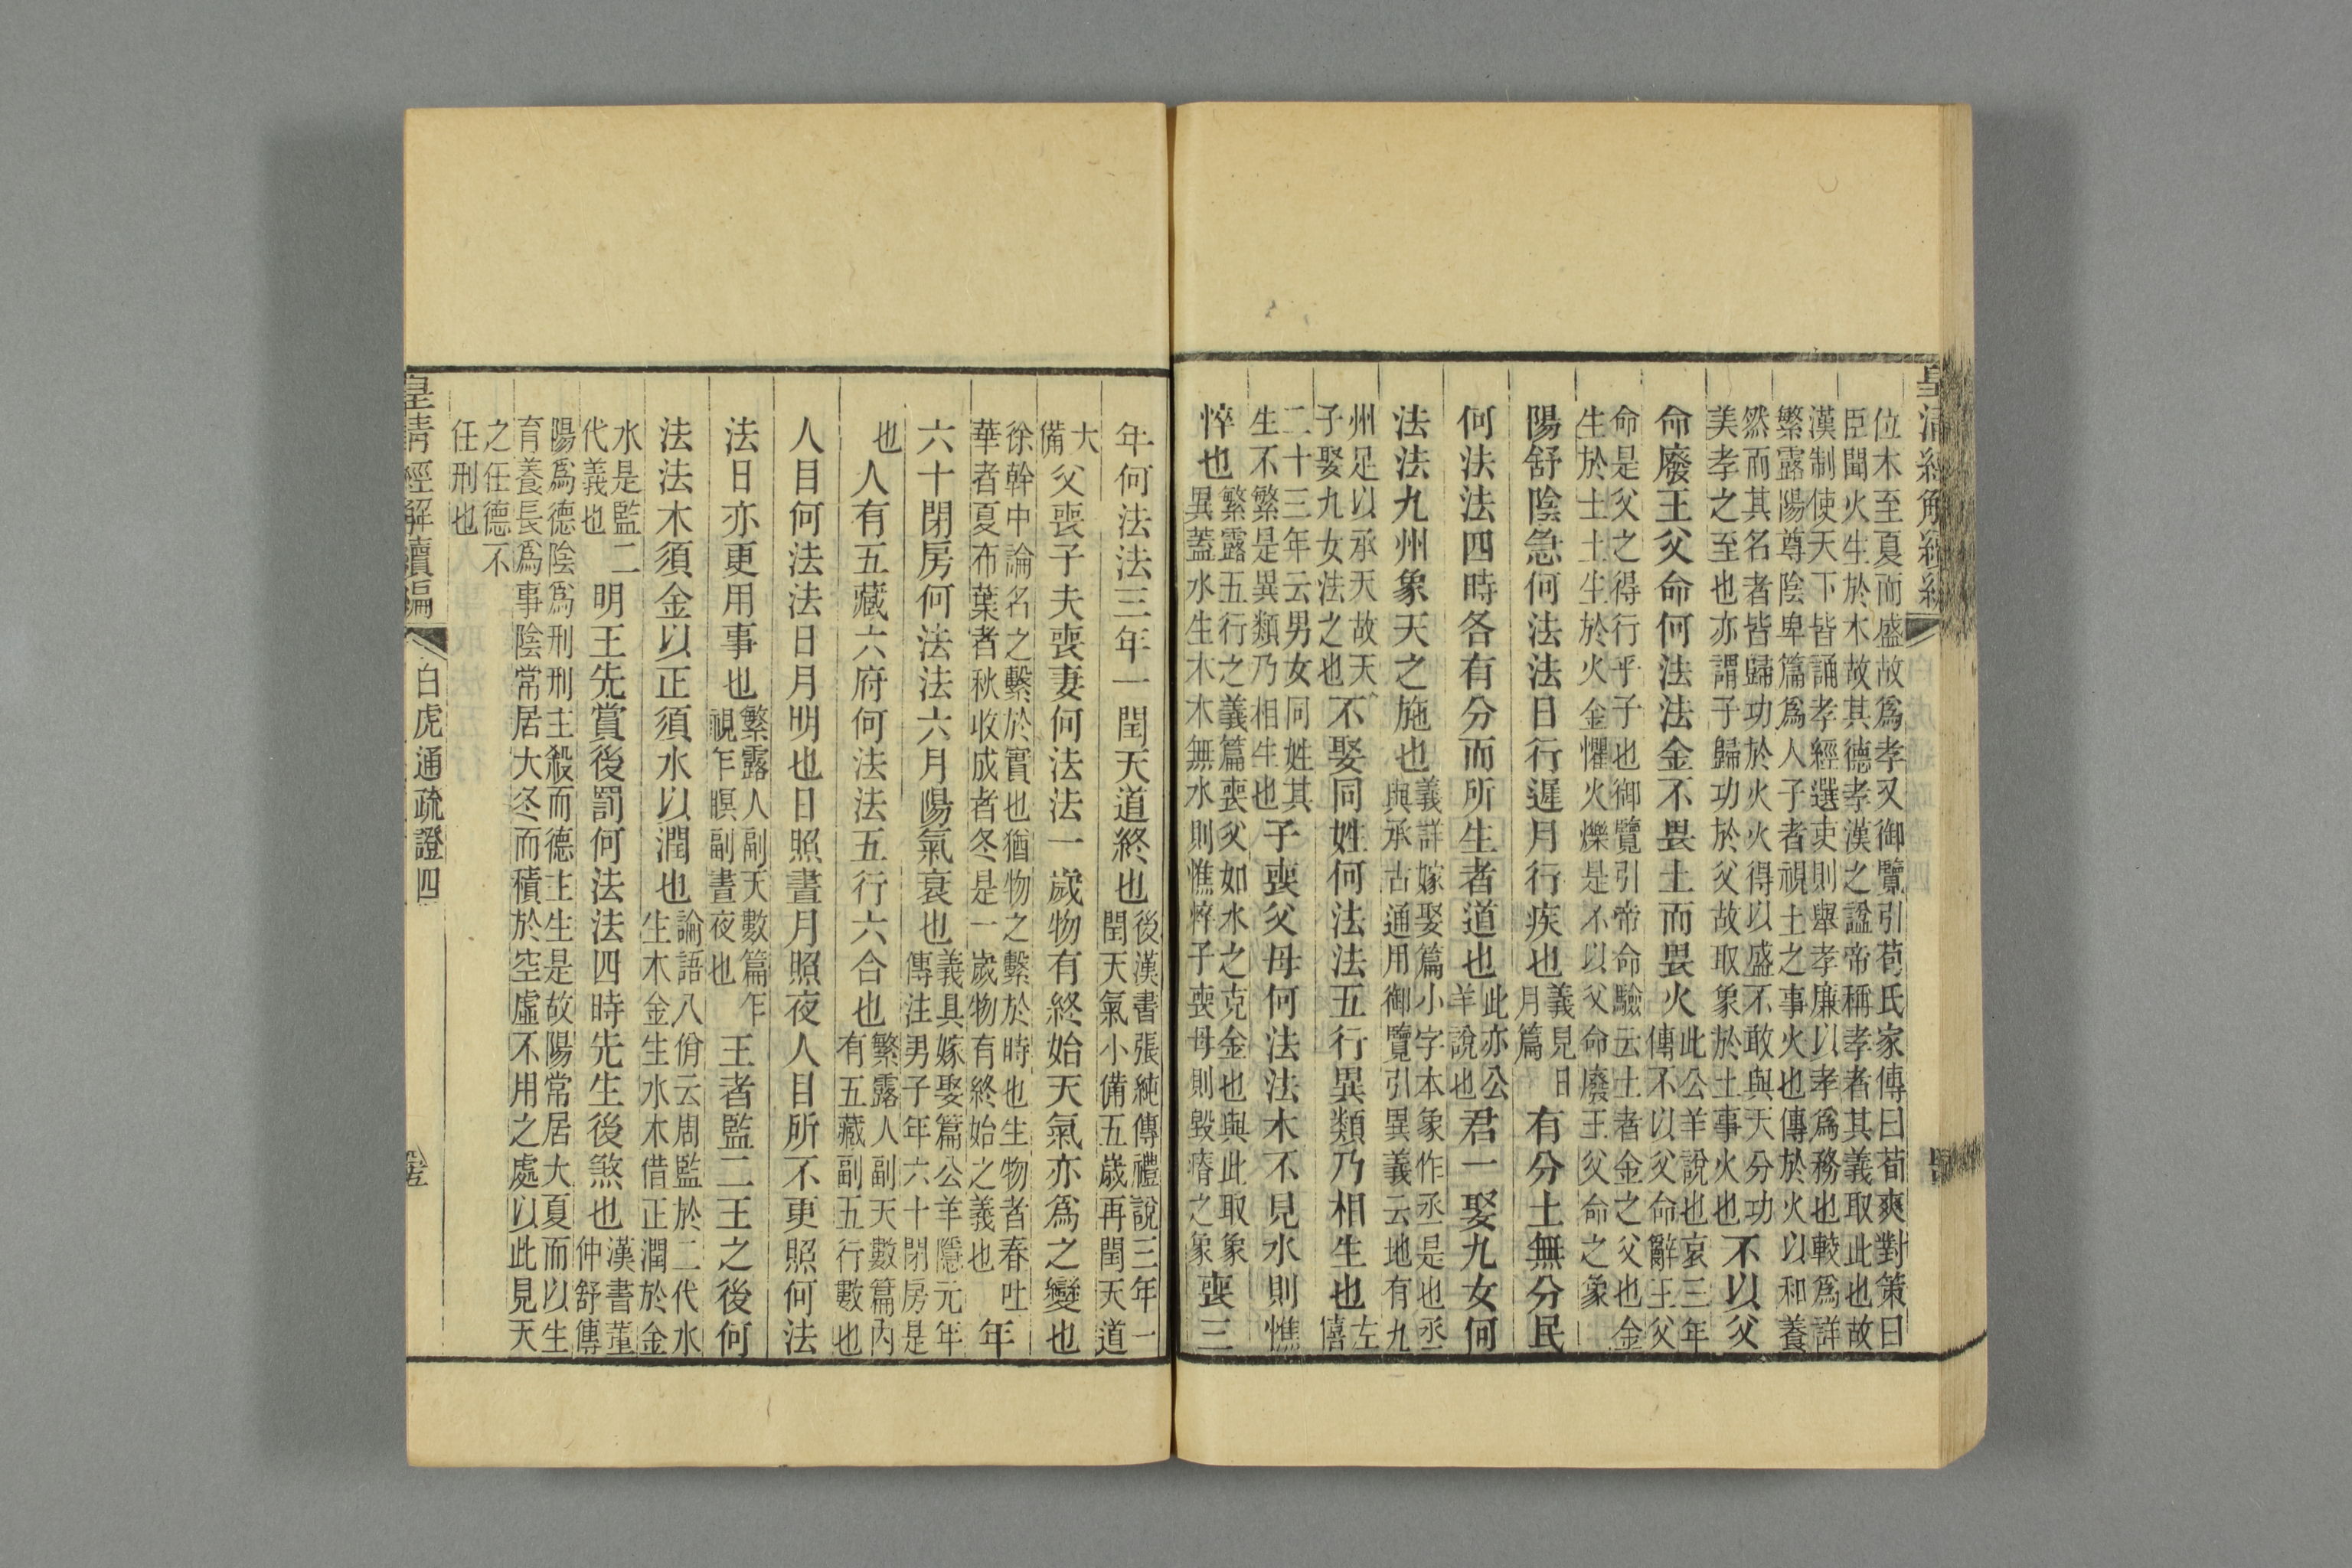 皇清經解續編
位木至夏而盛故爲孝又御覽引荀氏家傳曰荀爽對策曰
臣聞火生於木故其德孝漢之諡帝稱孝者其義取此也故
漢制使天下皆誦孝經選吏則舉孝廉以孝爲務也較爲詳
繁露陽尊陰卑篇爲人子者視土之事火也傳於火以和養
然而其名者皆歸功於火火得以盛不敢與天分功
美孝之至也亦謂子歸功於父故取象於土事火也
不以父
命廢王父命何法法金不畏土而畏火
此公羊說也哀三年
傳不以父命辭王父
命是父之得行乎子也御覽引帝命驗云土者金之父也金
生於土土生於火金懼火爍是不以父命廢王父命之象
陽舒陰急何法法日行遲月行疾也
義見日
月篇
有分土無分民
何法法四時各有分而所生者道也
此亦公
羊說也
君一娶九女何
法法九州象天之施也
義詳嫁娶篇小字本象作丞是也丞
與承古通用御覽引異義云地有九
州足以承天故天
子娶九女法之也
不娶同姓何法法五行異類乃相生也
左
僖
二十三年云男女同姓其
生不繁是異類乃相生也
子喪父母何法法木不見水則憔
悴也
繁露五行之義篇喪父如水之克金也與此取象
異蓋水生木木無水則憔悴子喪母則毀瘠之象
喪三
年何法法三年一閏天道終也
後漢書張純傳禮說三年一
閏天氣小備五歲再閏天道
大
備
父喪子夫喪妻何法法一歲物有終始天氣亦爲之變也
徐幹中論名之繫於實也猶物之繫於時也生物者春吐
華者夏布葉者秋收成者冬是一歲物有終始之義也
年
六十閉房何法法六月陽氣衰也
義具嫁娶篇公羊隱元年
傳注男子年六十閉房是
也
人有五藏六府何法法五行六合也
繁露人副天數篇內
有五藏副五行數也
人目何法法日月明也日照晝月照夜人目所不更照何法
法日亦更用事也
繁露人副天數篇乍
視乍瞑副晝夜也
王者監二王之後何
法法木須金以正須水以潤也
論語八佾云周監於二代水
生木金生水木借正潤於金
水是監二
代義也
明王先賞後罰何法法四時先生後煞也
漢書董
仲舒傳
陽爲德陰爲刑刑主殺而德主生是故陽常居大夏而以生
育養長爲事陰常居大冬而積於空虛不用之處以此見天
之任德不
任刑也
皇清經解續編
白虎通疏證四